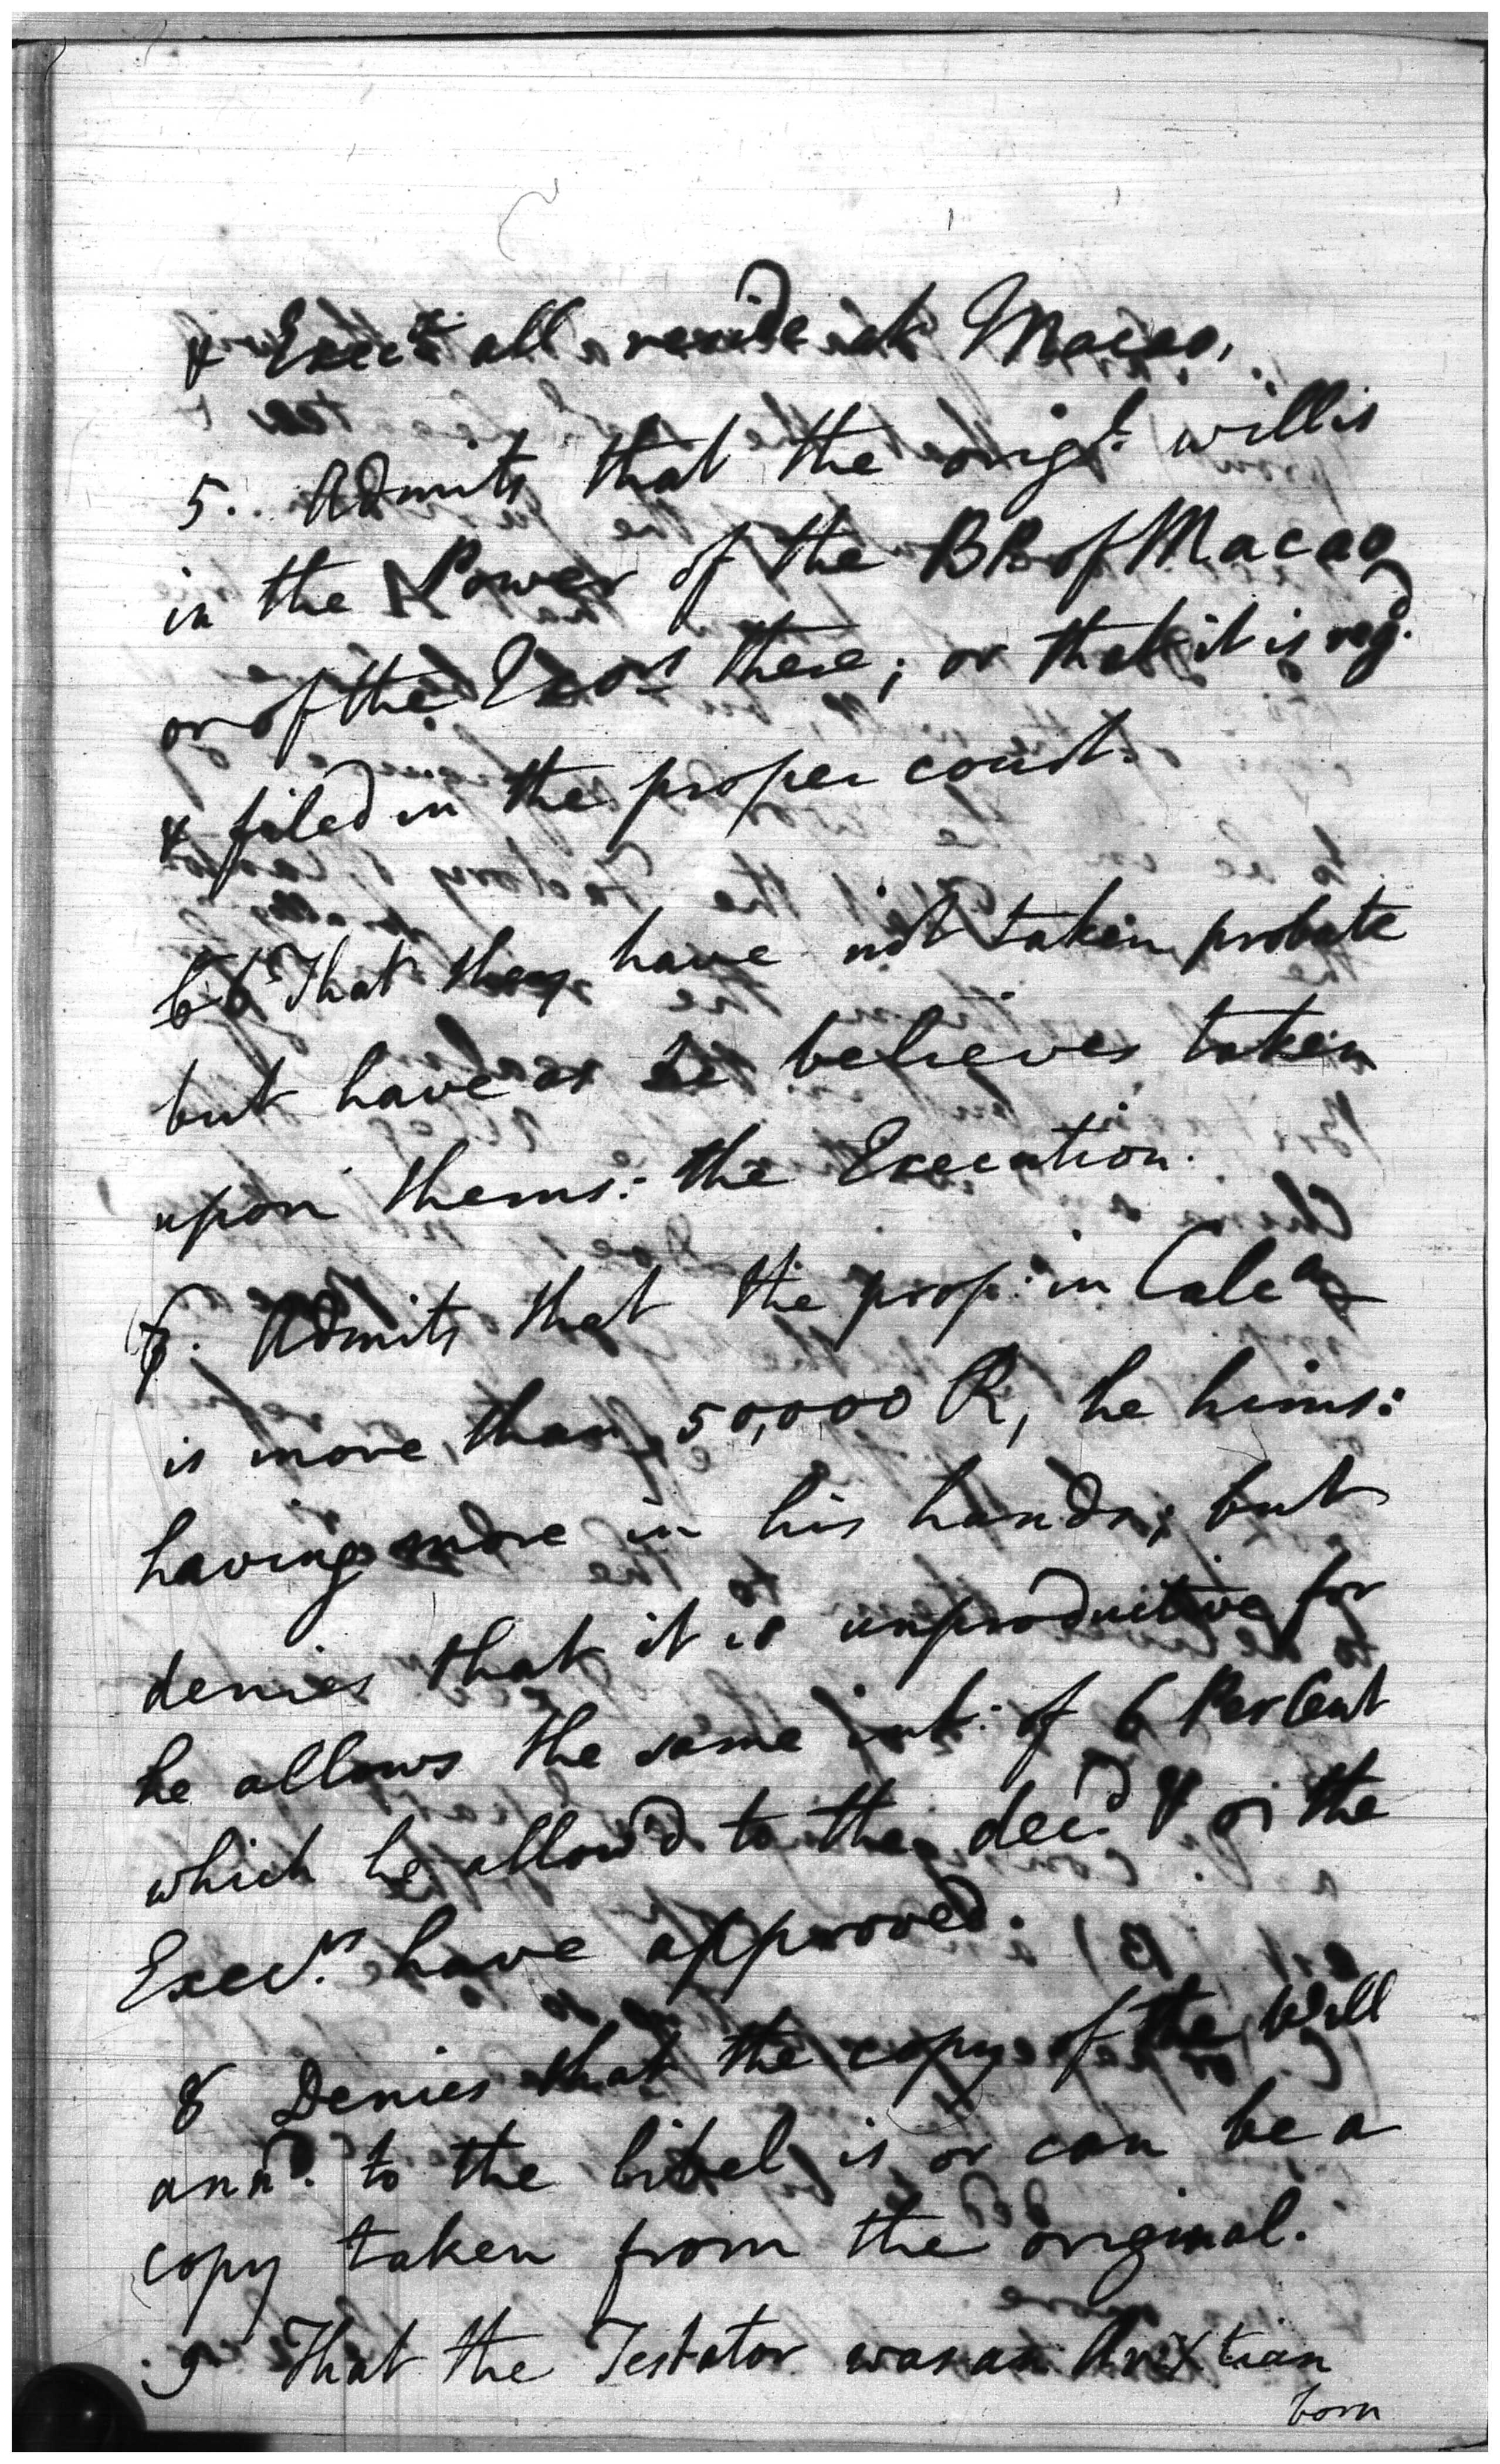 & Exec.rs all reside at Macao.
5. Admits that the orig.l will is
in the Power of the BP of Macao
or of the Exors there; or that it is reg.d
& filed in the proper court.
6 That they have not taken probate
but have as he believes taken
upon thems: the Execution.
7. Admits that the prop: in Calca
is more than 50,000 R, he hims:
having more in his hands; but
denies that it is unproductive for
he allows the same int: of 6 Per Cent
which he allow'd to the dec.d & the
Exec.rs have approved.
8 Denies that the copy of the Will
ann.d to the libel is or can be a
copy taken from the original.
9 That the Testator was an Ar Xtian
born